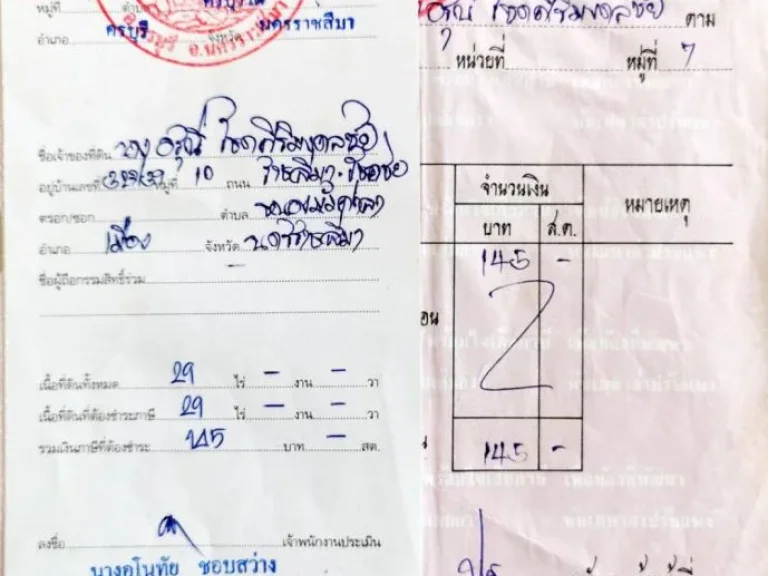 หมู่ที่ ตำบล ครบุรี
อำเภอ ครบุรี จังหวัด นครราชสีมา
อ.ครบุรี จ.นครราชสีมา
ชื่อเจ้าของที่ดิน นาง อรุณี โชคศิริมงคลชัย
อยู่บ้านเลขที่ หมู่ที่ 10 ถนน ราชสีมา-โชคชัย
ตรอก/ซอก ตำบล
อำเภอ เมือง จังหวัด นครราชสีมา
ชื่อผู้ถือกรรมสิทธิ์ร่วม
เนื้อที่ดินทั้งหมด 29 ไร่ - งาน - วา
เนื้อที่ดินที่ต้องชำระภาษี 29 ไร่ - งาน - วา
รวมเงินภาษีที่ต้องชำระ 145 บาท - สต.
ลงชื่อ เจ้าพนักงานประเมิน
นางอโนทัย ชอบสว่าง
อรุณี โชคศิริมงคลชัย ตาม
หน่วยที่ หมู่ที่ 7
จำนวนเงิน หมายเหตุ
บาท ส.ต.
145 -
อน
145 -